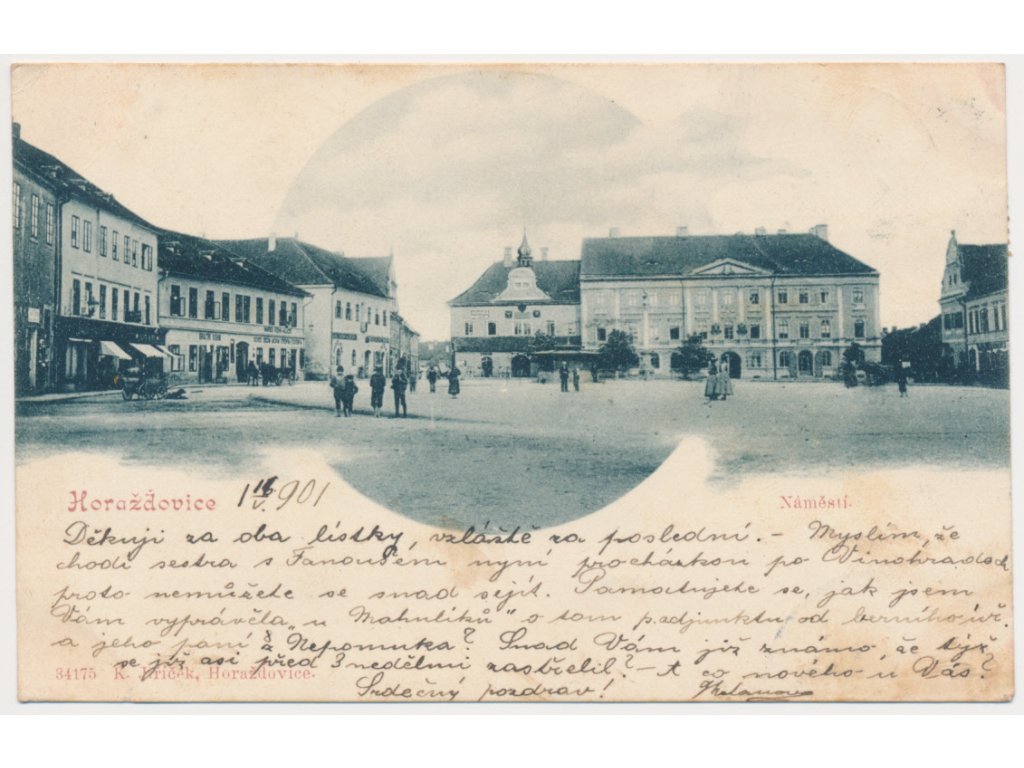 Horažďovice
1 16/V. 901
Náměstí.
Děkuji za oba lístky, vzláště za poslední. – Myslím, že
chodí sestra s Fanoušem nyní procházkou po Vinohradech
proto nemůžete se snad sejít. Pamatujete se, jak jsem
Vám vyprávěla „u Mahulíků" o tom p. adjunktu od berního úř.
a jeho paní z Nepomuka? Snad Vám již známo, že týž
se již asi před 3 nedělmi zastřelil? – A co nového u Vás?
34175 K. Hříček, Horažďovice.
Srdečný pozdrav!